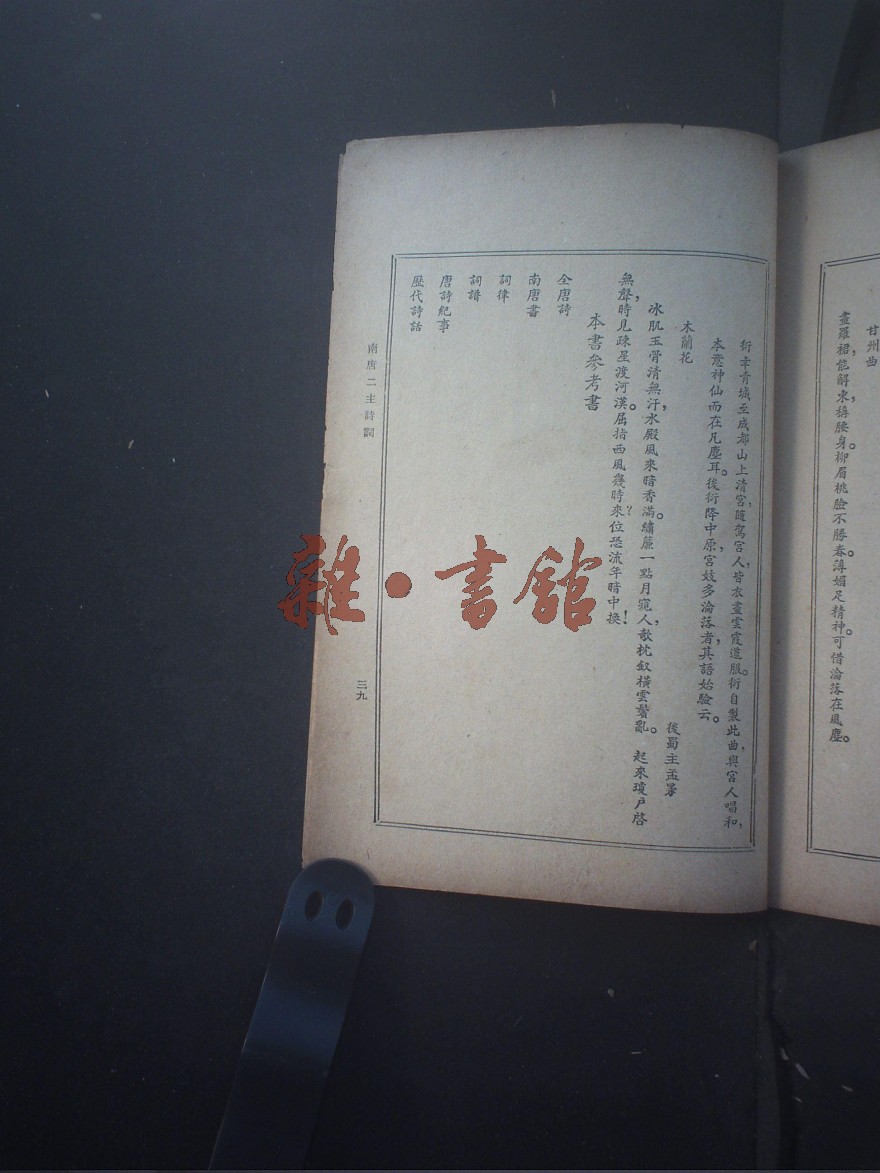 甘州曲
畫羅裙，能解束，稱腰身。柳眉桃臉不勝春。薄媚足精神。可惜淪落在風塵。
衍幸青城至成都山上清宮，隨駕宮人，皆衣畫雲霞道服。衍自製此曲，與宮人唱和，
本意神仙而在凡塵耳。後衍降中原，宮妓多淪落者，其語始驗云。
木蘭花
後蜀主孟昶
冰肌玉骨清無汗，水殿風來暗香滿。繡簾一點月窺人，欹枕釵橫雲鬢亂。 起來瓊戶啓
無聲，時見疎星渡河漢。屈指西風幾時來？位恐流年暗中換！
本書參考書
全唐詩
南唐書
詞律
詞譜
唐詩紀事
歷代詩話
南唐二主詩詞
三九
雜·書館